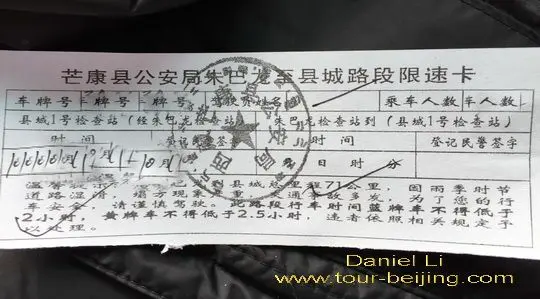 芒康县公安局朱巴龙至县城路段限速卡
车牌号 车牌号 驾驶员姓名 乘车人数 车人数
县城1号检查站(经朱巴龙检查站) 朱巴龙检查站到(县城1号检查站)
时间 登记民警签字 时间 登记民警签字
日 时 分
温馨提示: 朱巴龙到县城总里程71公里,因雨季时节
道路湿滑,塌方现象 交通事故多发,为了您的行
车安全,请谨慎驾驶。此路段行车时间蓝牌车不得低于
2小时,黄牌车不得低于2.5小时,违者依照相关规定予
以处理。
Daniel Li
www.tour-beijing.com